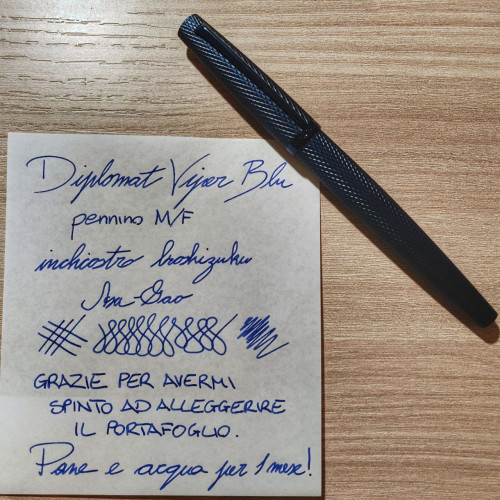 Diplomat Viper Blu
pennino M/F
inchiostro Iroshizuku
Asa-Gao
GRAZIE PER AVERMI
SPINTO AD ALLEGGERIRE
IL PORTAFOGLIO.
Pane e acqua per 1 mese!